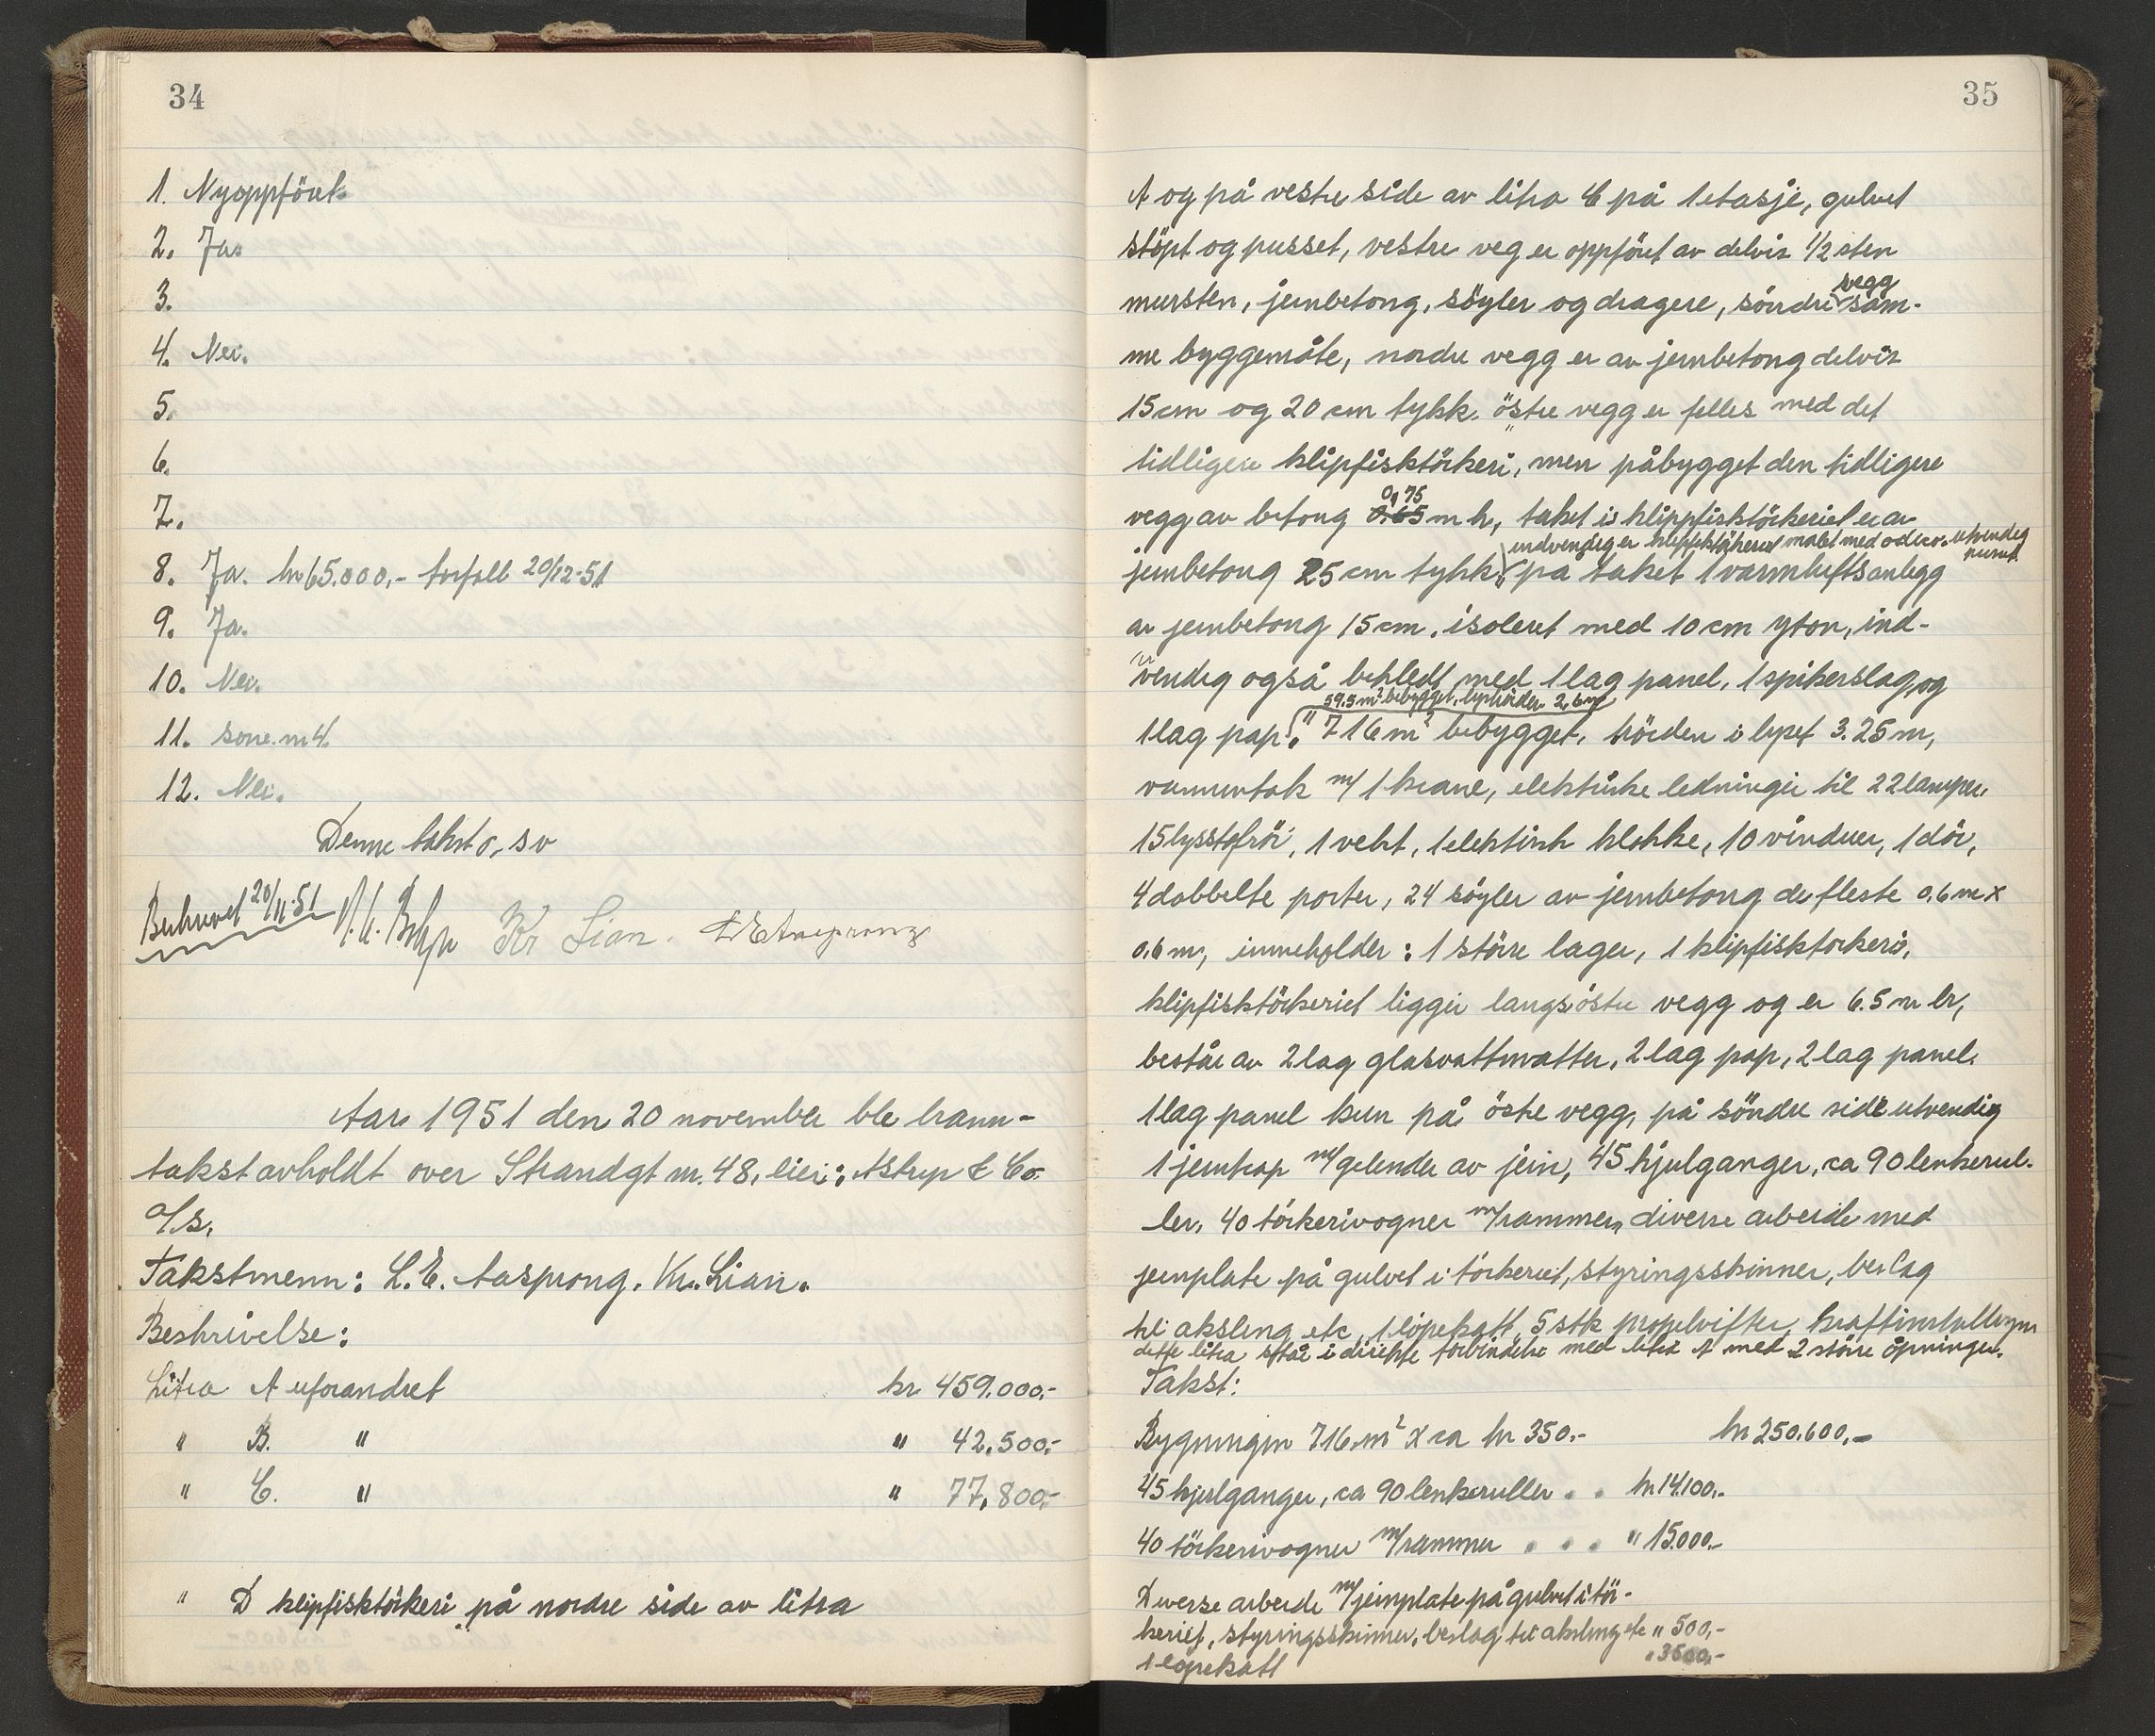 34
1. Nyoppföret
2. Ja.
3.
4. Nei.
5.
6.
7.
8. Ja. kr 65.000,- forfall 20/12-51
9. Ja.
10. Nei.
11. sone nr 4.
12. Nei.
Denne takst o, sv
Beskrevet 20/11-51 Kr Lian.
Aar 1951 den 20 november ble brann-
takst avholdt over Strandgt nr. 48, eier: Astrup & Co.
A/S.
Takstmenn: L.E. Aasprong. Kr. Lian.
Beskrivelse:
Litra A uforandret kr 459.000,-
" B. " " 42.500,-
" C. " " 77.800,-
" D klipfisktörkeri på nordre side av litra
35
A og på vestre side av litra C på 1 etasje, gulvet
stöpt og pusset, vestre veg er oppföret av delvis 1/2 sten
mursten, jernbetong, söyler og dragere, söndre vegg sam-
me byggemåte, nordre vegg er av jernbetong delvis
15 cm og 20 cm tykk. östre vegg er felles med det
tidligere klipfisktörkeri, men påbygget den tidligere
vegg av betong 0,75 m h, taket i klippfisktörkeriet er av
indvendig er klipfisktörkeriet malt med utvendig
jernbetong 25 cm tykk, på taket 1 varmluftsanlegg
av jernbetong 15 cm, isoleret med 10 cm yton, ind-
vendig også bekledt med 1 lag panel, 1 spikerslag og
59.5 m² bebygget, 2,6 m
1 lag pap. " 716 m² bebygget, höiden i löpet 3.25 m,
vanninntak m/ 1 krane, elektriske ledninger til 22 lamper
15 lysstofrör, 1 vekt, 1 elektrisk klokke, 10 vinduer, 1 dör,
4 dobbelte porter, 24 söyler av jernbetong de fleste 0.6 m x
0.6 m, inneholder: 1 större lager, 1 klipfisktörkeri,
klipfisktörkeriet ligger langs östre vegg og er 6.5 m br,
består av 2 lag glasvattmatter, 2 lag pap, 2 lag panel.
1 lag panel kun på östre vegg, på söndre side utvendig
1 jerntrap m/ gelender av jern, 45 hjulganger, ca 90 lenkerul-
ler, 40 törkerivogner m/rammer, diverse arbeide med
jernplate på gulvet i törkeriet, styringsskinner, beslag
til aksling etc, 1 löpekatt, 5 stk propelvifter, kraftinstallasjon
dette litra står i direkte forbindelse med litra A med 2 större åpninger.
Takst:
Bygningen 716 m² x ca kr 350,- kr 250.600,-
45 hjulganger, ca 90 lenkeruller . . kr 14.100,-
40 törkerivogner m/rammer . . . " 15.000,-
Diverse arbeide m/jernplate på gulvet i tör-
keriet, styringsskinner, beslag til aksling etc " 500,-
1 löpekatt " 3500,-